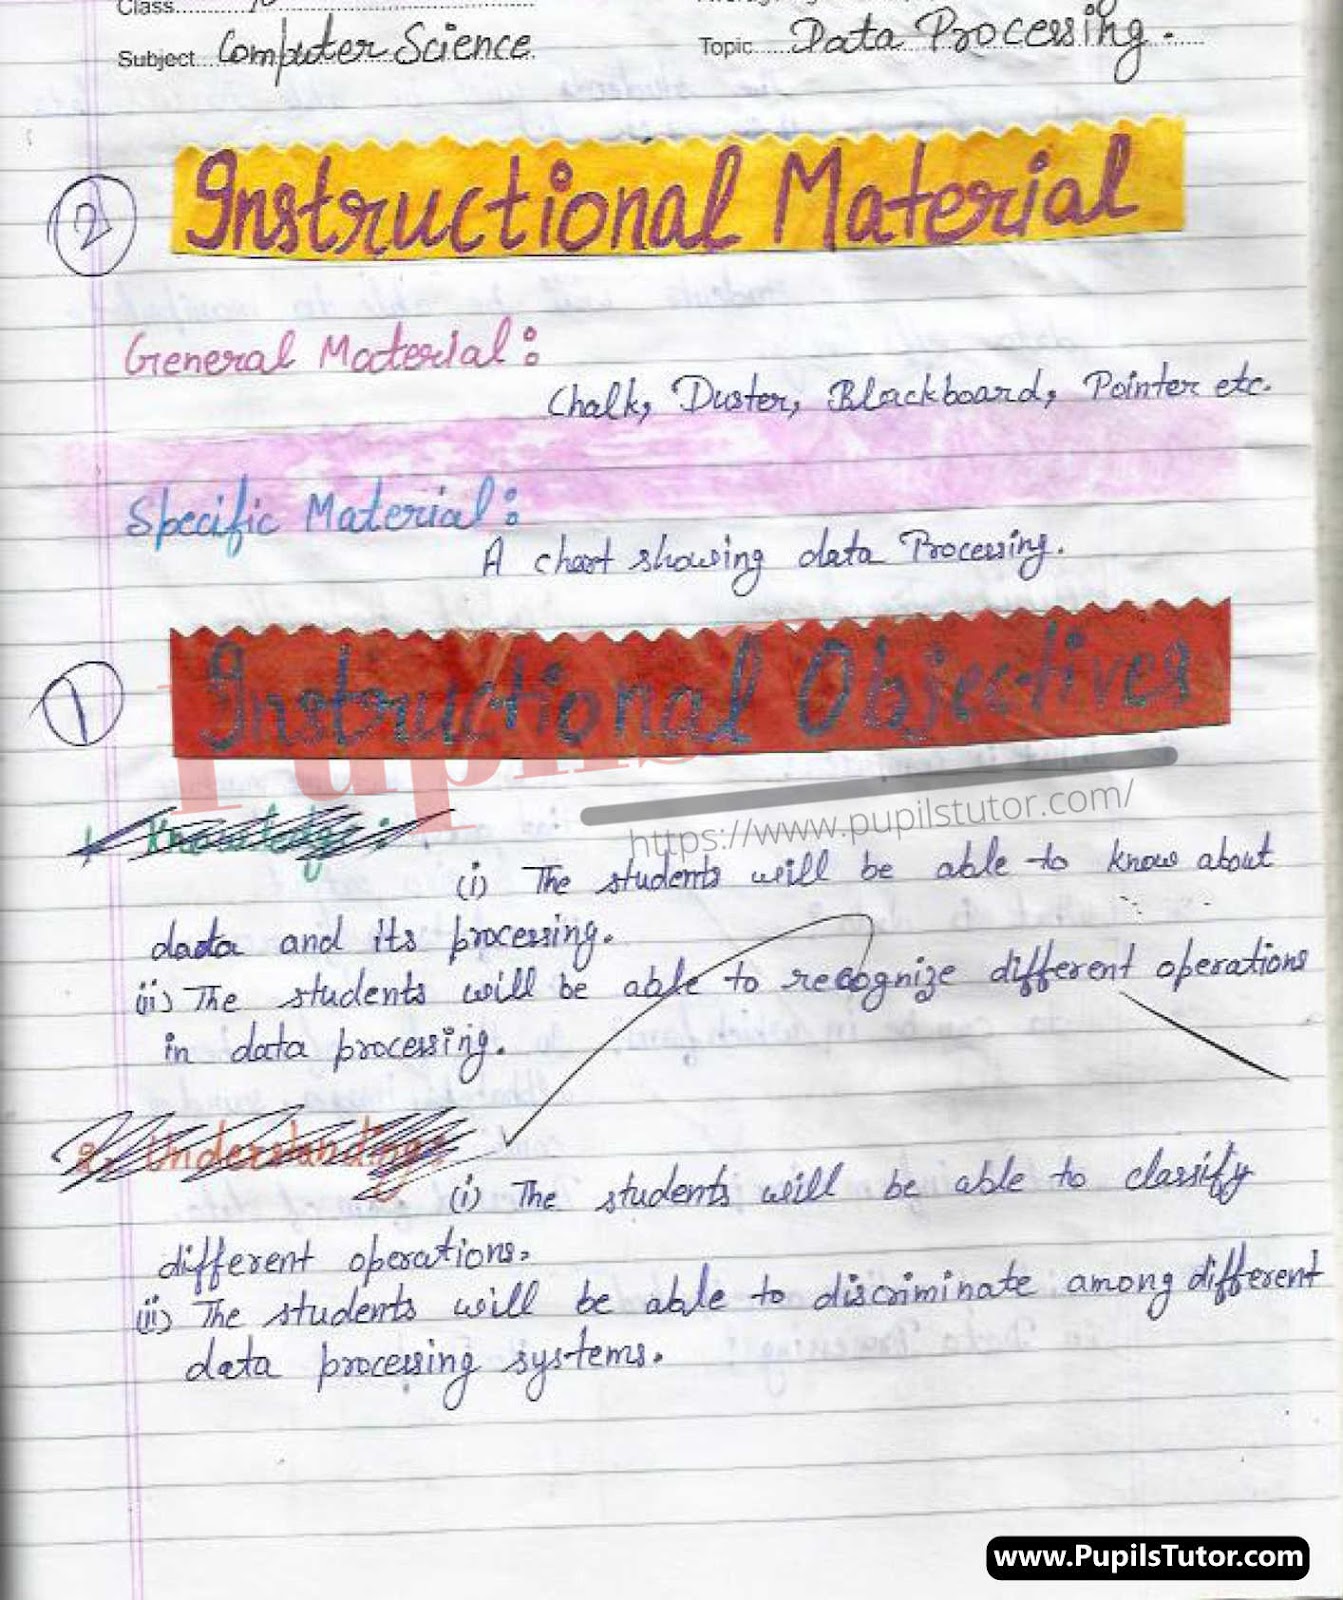 Class
Subject Computer Science
Topic Data Processing.
2 Instructional Material
General Material:
Chalk, Duster, Blackboard, Pointer etc.
Specific Material:
A chart showing data Processing.
1 Instructional Objectives
https://www.pupilstutor.com/
1. Knowledge:
(i) The students will be able to know about
data and its processing.
(ii) The students will be able to recognize different operations
in data processing.
2. Understanding:
(i) The students will be able to classify
different operations.
(ii) The students will be able to discriminate among different
data processing systems.
www.PupilsTutor.com